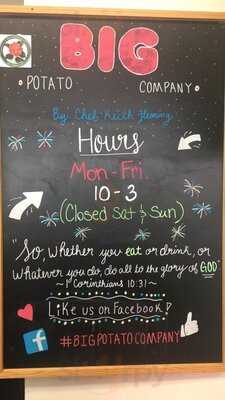 BIG
POTATO COMPANY
By: Chef Keith Fleming
Hours
Mon-Fri.
10-3
(Closed Sat & Sun)
"So, whether you eat or drink, or
whatever you do, do all to the glory of GOD"
~1 Corinthians 10:31~
Like us on Facebook!
f
#BIGPOTATOCOMPANY